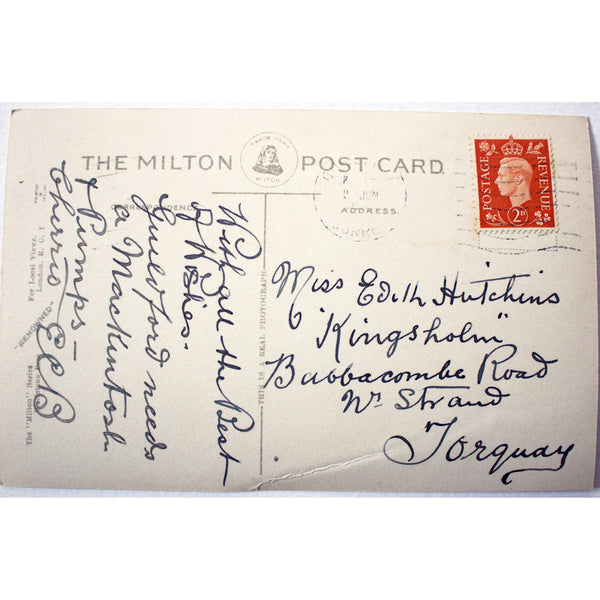 THE MILTON
TRADE MARK
MILTON
POST CARD
CORRESPONDENCE
ADDRESS
With all the Best
of Wishes.
Guildford needs
a Mackintosh
& Pumps —
Cheerio ECB
Miss Edith Hutchins
"Kingsholm"
Babbacombe Road
Nr Strand
Torquay
POSTAGE
REVENUE
2D
JUN
THIS IS A REAL PHOTOGRAPH
The "Milton" Series
"RENOWNED"
For Local Views.
London, E.C.1